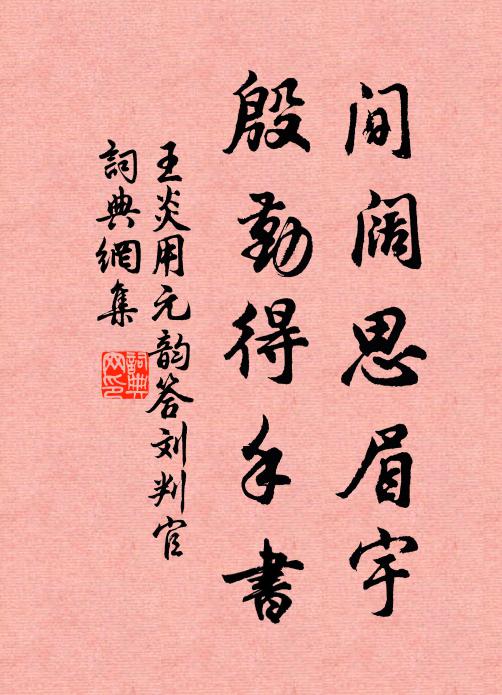 间阔思眉宇
殷勤得手書
王炎用元韵答刘判官
詞典網集
詞典网印